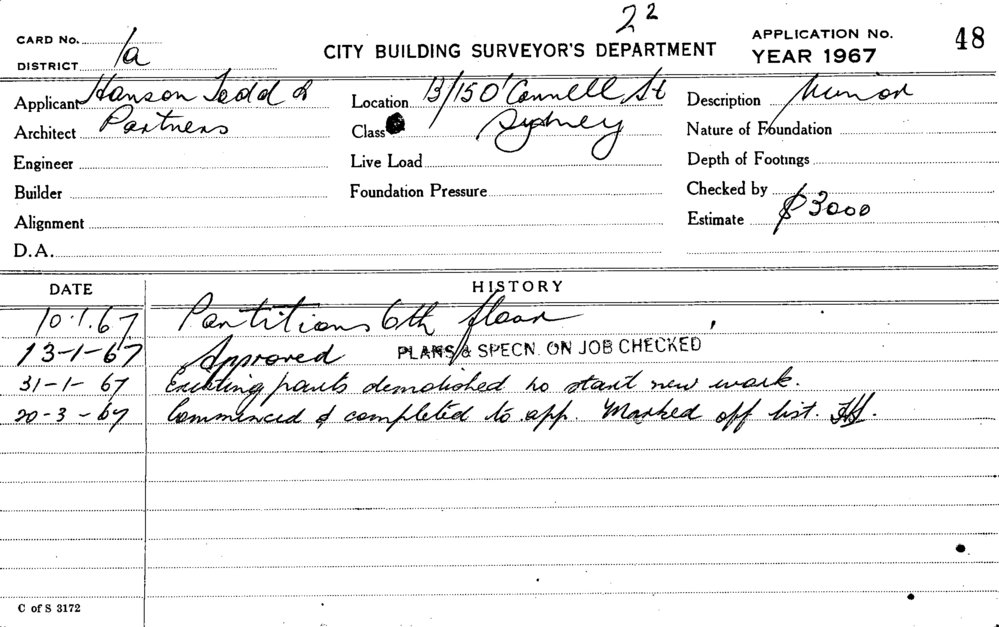 22
CARD No.
DISTRICT 1a
CITY BUILDING SURVEYOR'S DEPARTMENT
APPLICATION No. 48
YEAR 1967
Applicant Hanson Todd &
Architect Partners
Engineer
Builder
Alignment
D.A.
Location 13/15 O'Connell St
Class Sydney
Live Load
Foundation Pressure
Description Minor
Nature of Foundation
Depth of Footings
Checked by
Estimate $3000
DATE HISTORY
10.1.67 Partitions 6th floor
13-1-67 Approved PLANS & SPECN. ON JOB CHECKED
31-1-67 Existing parts demolished no start new work.
20-3-67 Commenced & completed to app. Marked off list.
C of S 3172